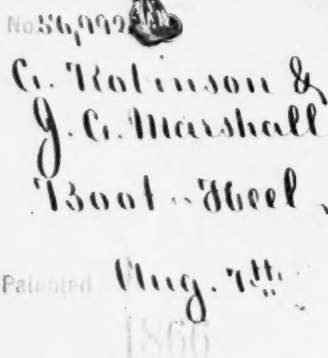 No 56,992
C. Robinson &
J. G. Marshall
Boot - Heel,
Patented Aug. 7th
1866